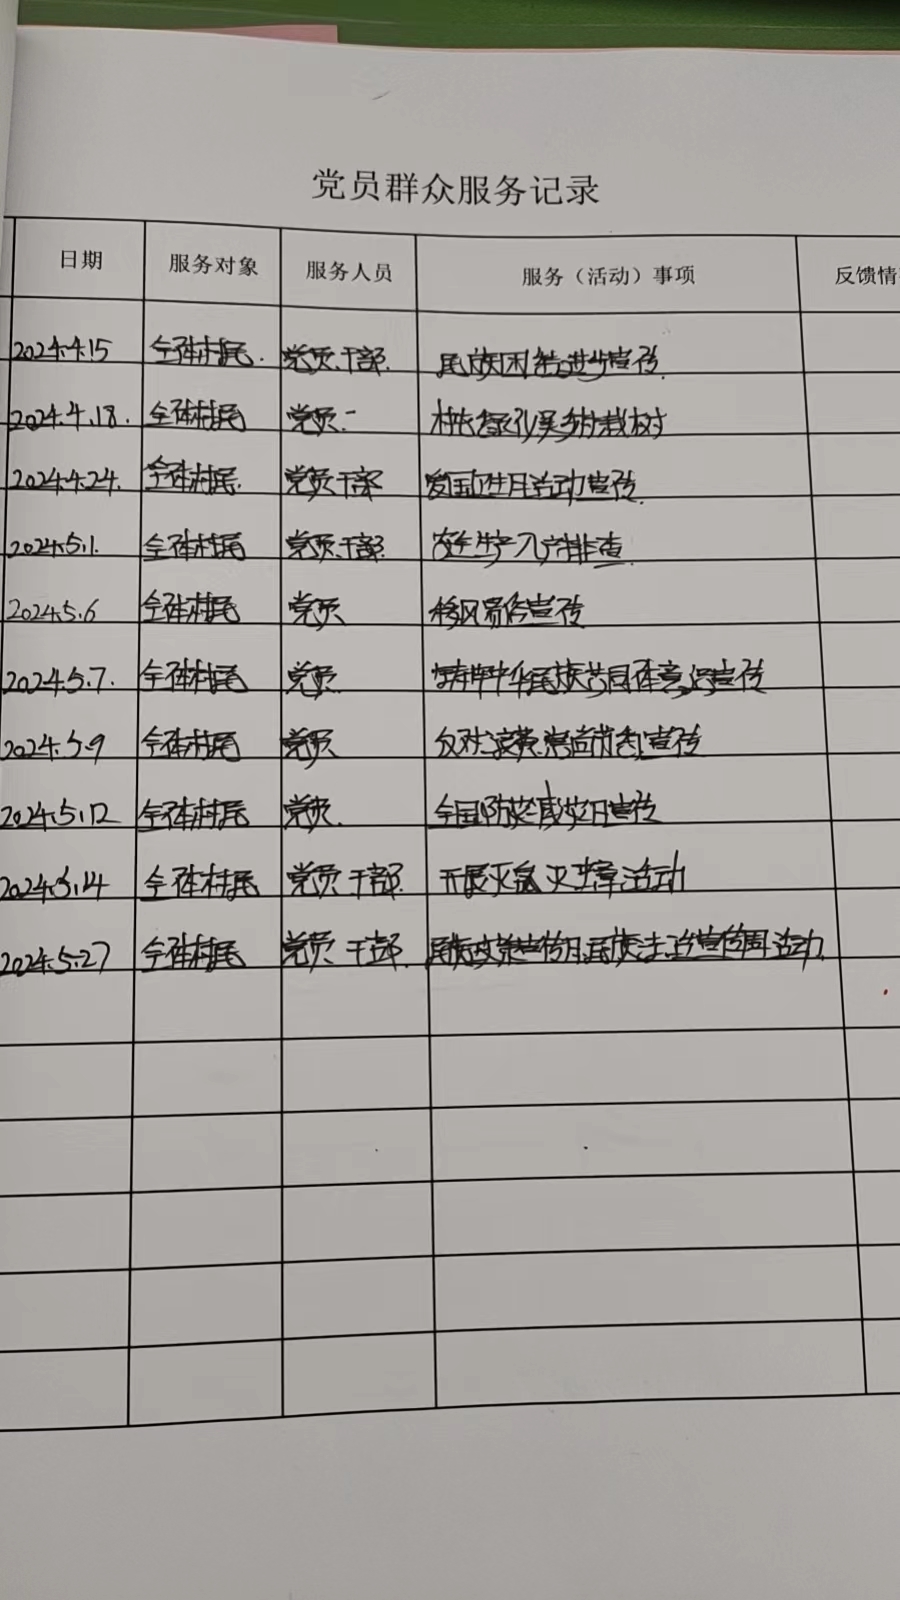 党员群众服务记录
日期 服务对象 服务人员 服务（活动）事项 反馈情
2024.4.15 全体村民. 党员.干部. 民族团结进步宣传.
2024.4.18. 全体村民 党员. 栽树
2024.4.24. 全体村民. 党员干部 爱国卫生月活动宣传.
2024.5.1. 全体村民 党员.干部. 安全生产入户排查
2024.5.6 全体村民 党员 移风易俗宣传
2024.5.7. 全体村民 党员. 铸牢中华民族共同体意识宣传
2024.5.9 全体村民 党员 反对浪费.崇尚节俭宣传
2024.5.12 全体村民 党员. 全国防灾减灾日宣传
2024.5.14 全体村民 党员干部. 开展灭鼠灭蟑活动
2024.5.27 全体村民 党员干部. 民族政策宣传月.民族法治宣传周活动.